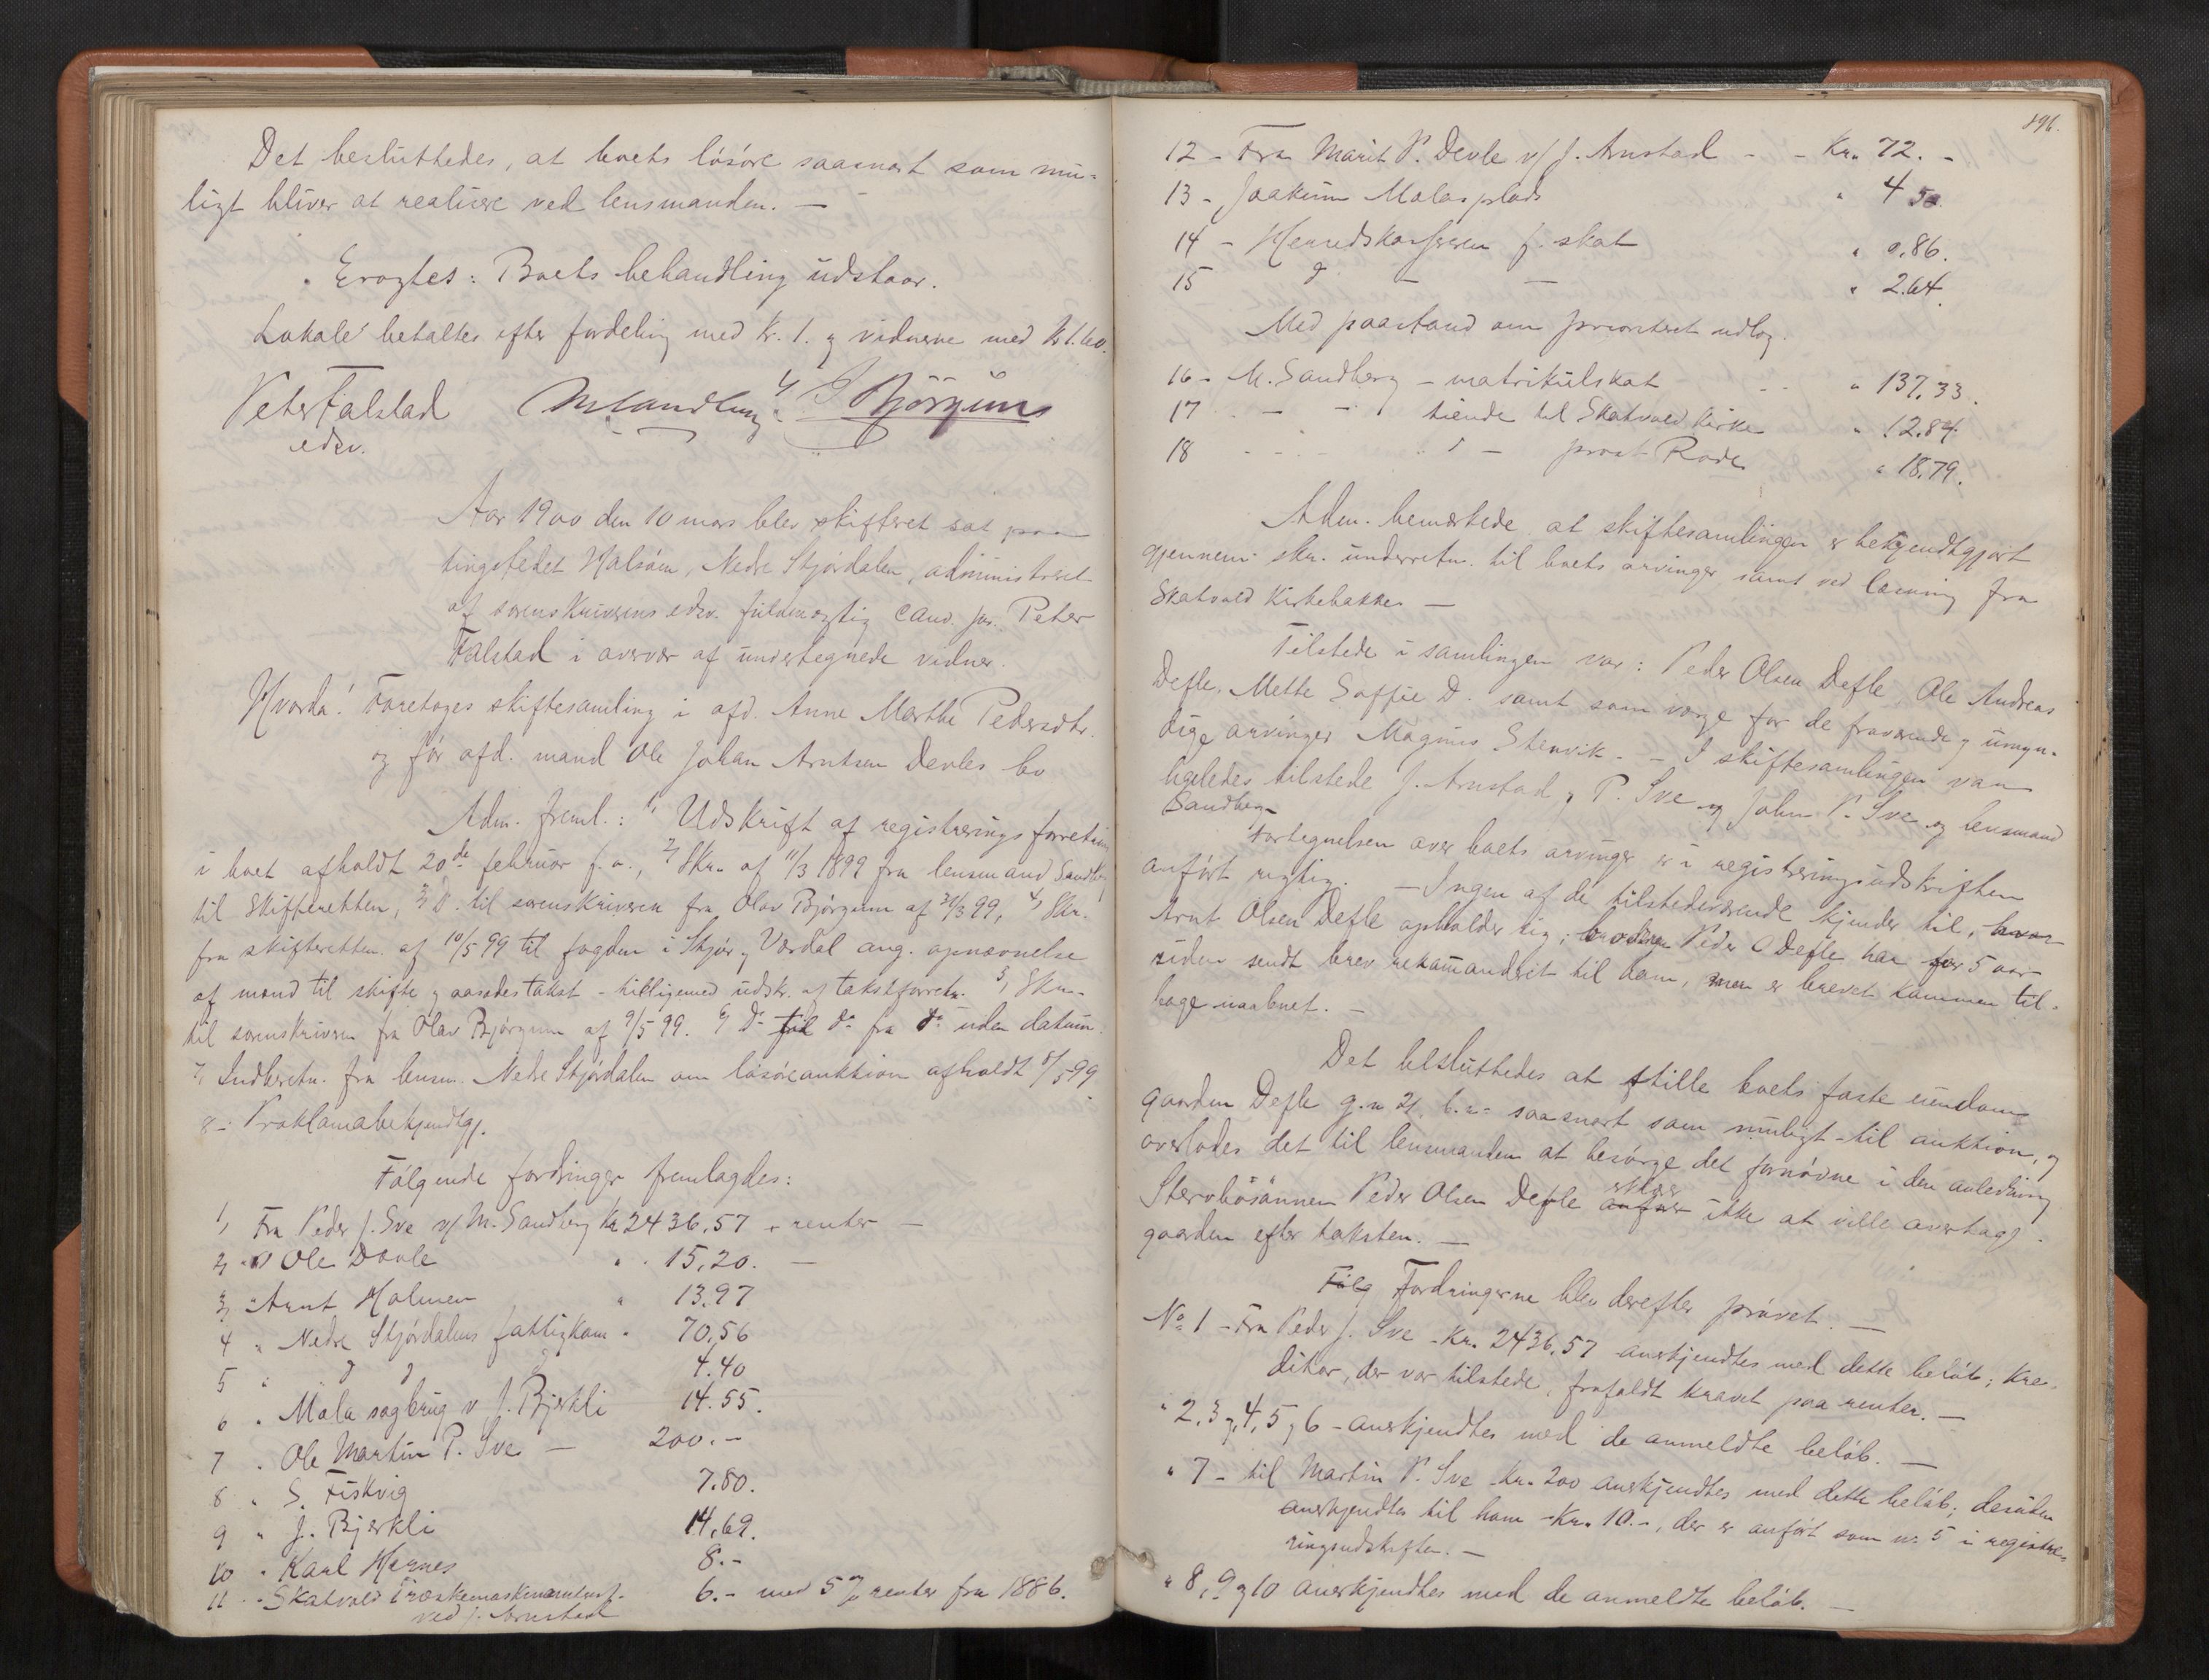 Det besluttedes, at boets løsøre saasnart som mu-
ligt bliver at realisere ved lensmanden. —
Eragtes: Boets behandling udstaar.
Lokale betaltes efter fordeling med Kr. 1. og vidnerne med Kr 1.60.
Peter Falstad MSandberg O Bjørgum
edsv.
Aar 1900 den 10 mars blev skifteret sat paa
tingstedet Halsøen, Nedre Stjørdalen, administreret
af sorenskriverens edsv. fuldmægtig cand. jur. Peter
Falstad i overvær af undertegnede vidner.
Hvorda! Foretoges skiftesamling i afd. Anne Marthe Pedersdtr.
og før afd. mand Ole Johan Arntsen Devles bo
Adm. freml.: 1, Udskrift af registreringsforretning
i boet afholdt 20de februar f.a., 2, Skr. af 11/3 1899 fra lensmand Sandberg
til Skifteretten, 3, D. til sorenskriveren fra Olav Bjørgum af 21/3 99, 4, Skr.
fra skifteretten af 10/5 99 til fogden i Stjør og Værdal ang. opnævnelse
af mænd til skifte og aasædestakst - tilligemed udskr. af takstforretn. 5, Skr.
til sorenskriveren fra Olav Bjørgum af 9/5 99. 6, Do til do fra do uden datum.
7, Indberetn. fra lensm. Nedre Stjørdalen om løsøreauktion afholdt 8/5 99
8 - Proklamabekjendtgj.
Følgende fordringer fremlagdes:
1, Fra Peder J. Sve v/ M. Sandberg Kr 2436,57 + renter —
2, " Ole Davle " 15,20. —
3, " Arnt Holmen " 13,97
4 " Nedre Stjørdalens fattigkom " 70,56
5 " " " 4.40
6 " Mala sagbrug v J. Bjerkli 14.55.
7 " Ole Martin P. Sve — 200.-
8 " S. Fiskvig 7.80.
9 " J. Bjerkli 14,69.
10 " Karl Hernes 8.-
11 - Skatvold Træskemaskin 6.- med 5 % renter fra 1886.
ved J. Arnstad
196.
12 - Fra Marit P. Devle v/ J. Arnstad - - Kr. 72. -
13 - Joakim Malasplads " 4 50.
14 - Herredskasseren f. skat " 0,86.
15 d — — " 2.64.
Med paastand om prioriteret udlæg.
16 - M. Sandberg - matrikulskat - - " 137,33.
17 - - - tiende til Skatvold Kirke " 12.84.
18 - - - - provst Rode " 18.79.
Adm. bemærkede at skiftesamlingen er bekjendtgjort
gjennem skr. underretn. til boets arvinger samt ved læsning fra
Skatvold Kirkebakke —
Tilstede i samlingen var: Peder Olsen Defle, Ole Andreas
Defle, Mette Soffie D. samt som verge for de fraværende og umyn-
dige arvinger Magnus Stenvik. - I skiftesamlingen var
ligeledes tilstede J. Arnstad, P. Sve og Johan P. Sve og lensmand
Sandberg
Fortegnelsen over boets arvinger er i registreringsudskriften
anført rigtig. - Ingen af de tilstedeværende kjender til, hvor
Arnt Olsen Defle opholder sig; broderen Peder O Defle har for 5 aar
siden sendt brev rekommanderit til ham, men er brevet kommen til-
bage uaabnet. —
Det besluttedes at stille boets faste eiendom
gaarden Defle g.n 21, b.n. saasnart som muligt til auktion, og
overlodes det til lensmanden at besørge det fornødne i den anledning
erklær
Stervbosønnen Peder Olsen Defle anfør ikke at ville overtage
gaarden efter taksten. —
Følg Fordringerne blev derefter prøvet. —
No 1 - Fra Peder J. Sve - Kr. 2436,57 anerkjendtes med dette beløb; kre-
ditor, der var tilstede, frafaldt kravet paa renter. —
" 2, 3, 4, 5 og 6 - anerkjendtes med de anmeldte beløb. —
" 7 - til Martin P. Sve - Kr. 200 anerkjendtes med dette beløb; desuden
anerkjendtes til ham - Kr. 10.-, der er anført som nr. 5 i registre-
ringsudskriften. —
" 8, 9 og 10 anerkjendtes med de anmeldte beløb. —